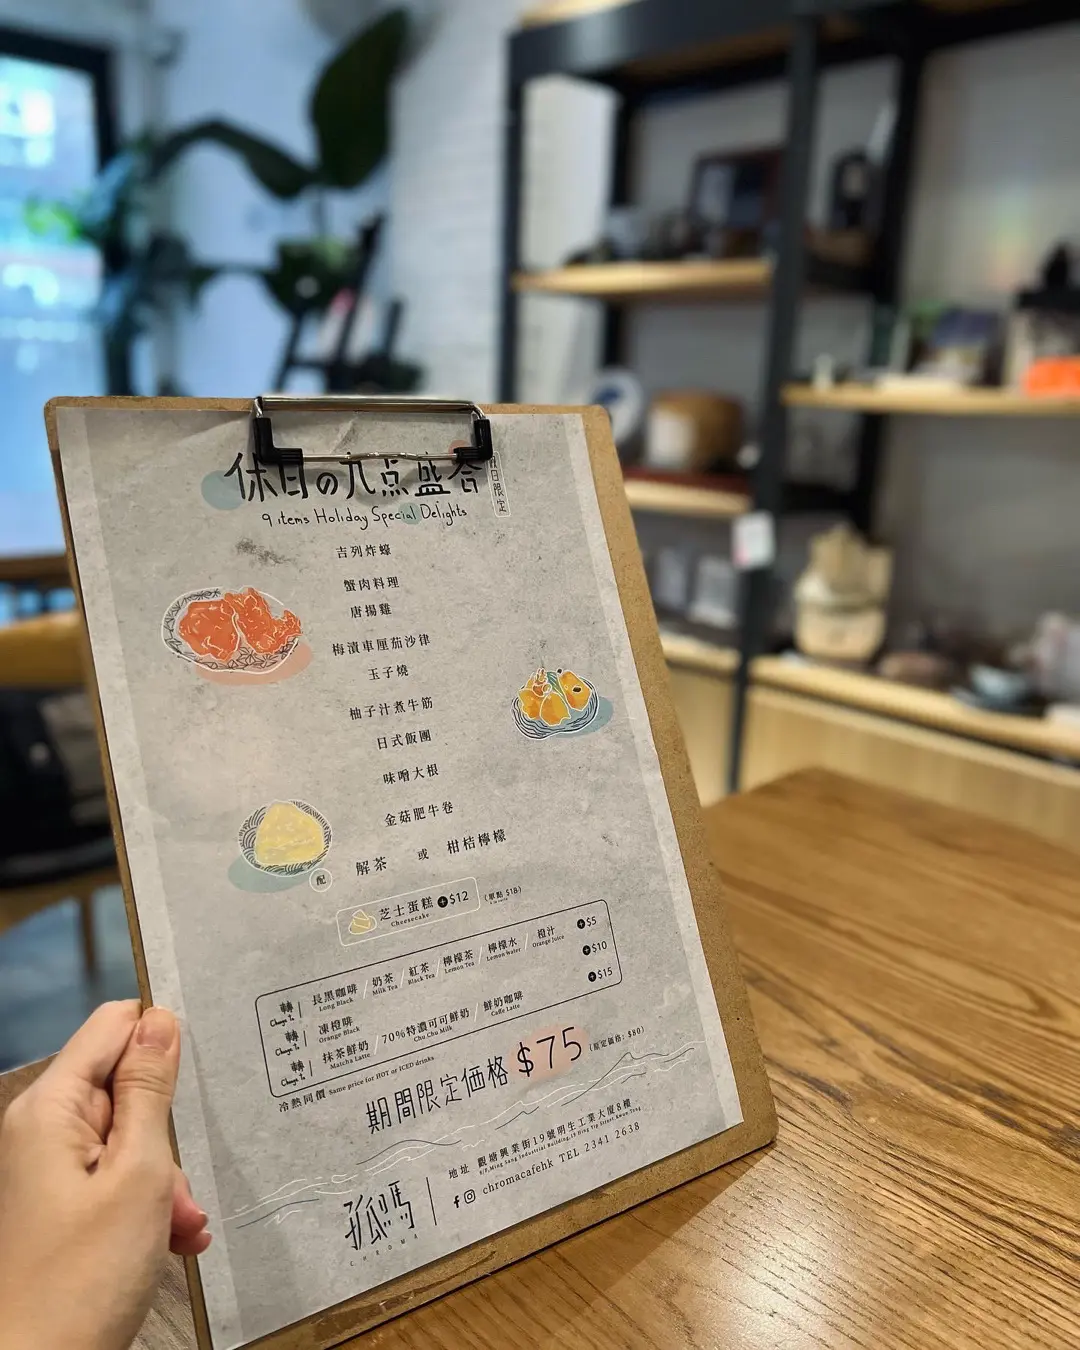 休日の九点盛合
假日限定
9 items Holiday Special Delights
吉列炸蠔
蟹肉料理
唐揚雞
梅漬車厘茄沙律
玉子燒
柚子汁煮牛筋
日式飯團
味噌大根
金菇肥牛卷
配 解茶 或 柑桔檸檬
芝士蛋糕 +$12 (單點 $18)
Cheesecake
轉 長黑咖啡 / 奶茶 / 紅茶 / 檸檬茶 / 檸檬水 / 橙汁 +$5
Change To Long Black Milk Tea Black Tea Lemon Tea Lemon Water Orange Juice
轉 凍橙啡 +$10
Change To Orange Black
轉 抹茶鮮奶 / 70%特濃可可鮮奶 / 鮮奶咖啡 +$15
Change To Matcha Latte Chu Chu Milk Caffe Latte
冷熱同價 Same price for HOT or ICED drinks
期間限定価格 $75 (原定価格: $80)
地址 觀塘興業街19號明生工業大廈8樓
8/F,Ming Sang Industrial Building,19 Hing Yip Street,Kwun Tong
chromacafehk TEL 2341 2638
孤嗎
CHROMA